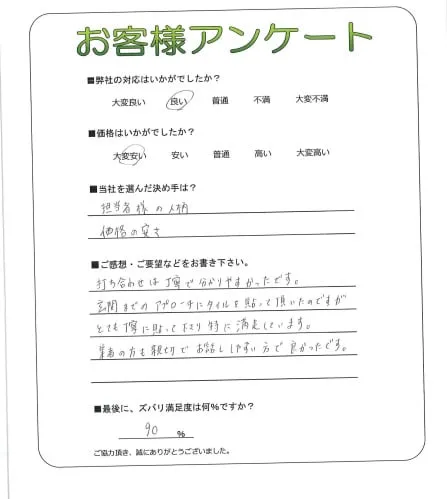 お客様アンケート
■弊社の対応はいかがでしたか?
大変良い 良い 普通 不満 大変不満
■価格はいかがでしたか?
大変安い 安い 普通 高い 大変高い
■当社を選んだ決め手は?
担当者様の人柄
価格の安さ
■ご感想・ご要望などをお書き下さい。
打ち合わせは丁寧で分かりやすかったです。
玄関までのアプローチにタイルを貼って頂いたのですが
とても丁寧に貼って下さり特に満足しています。
業者の方も親切でお話ししやすい方で良かったです。
■最後に、ズバリ満足度は何%ですか?
90 %
ご協力頂き、誠にありがとうございました。